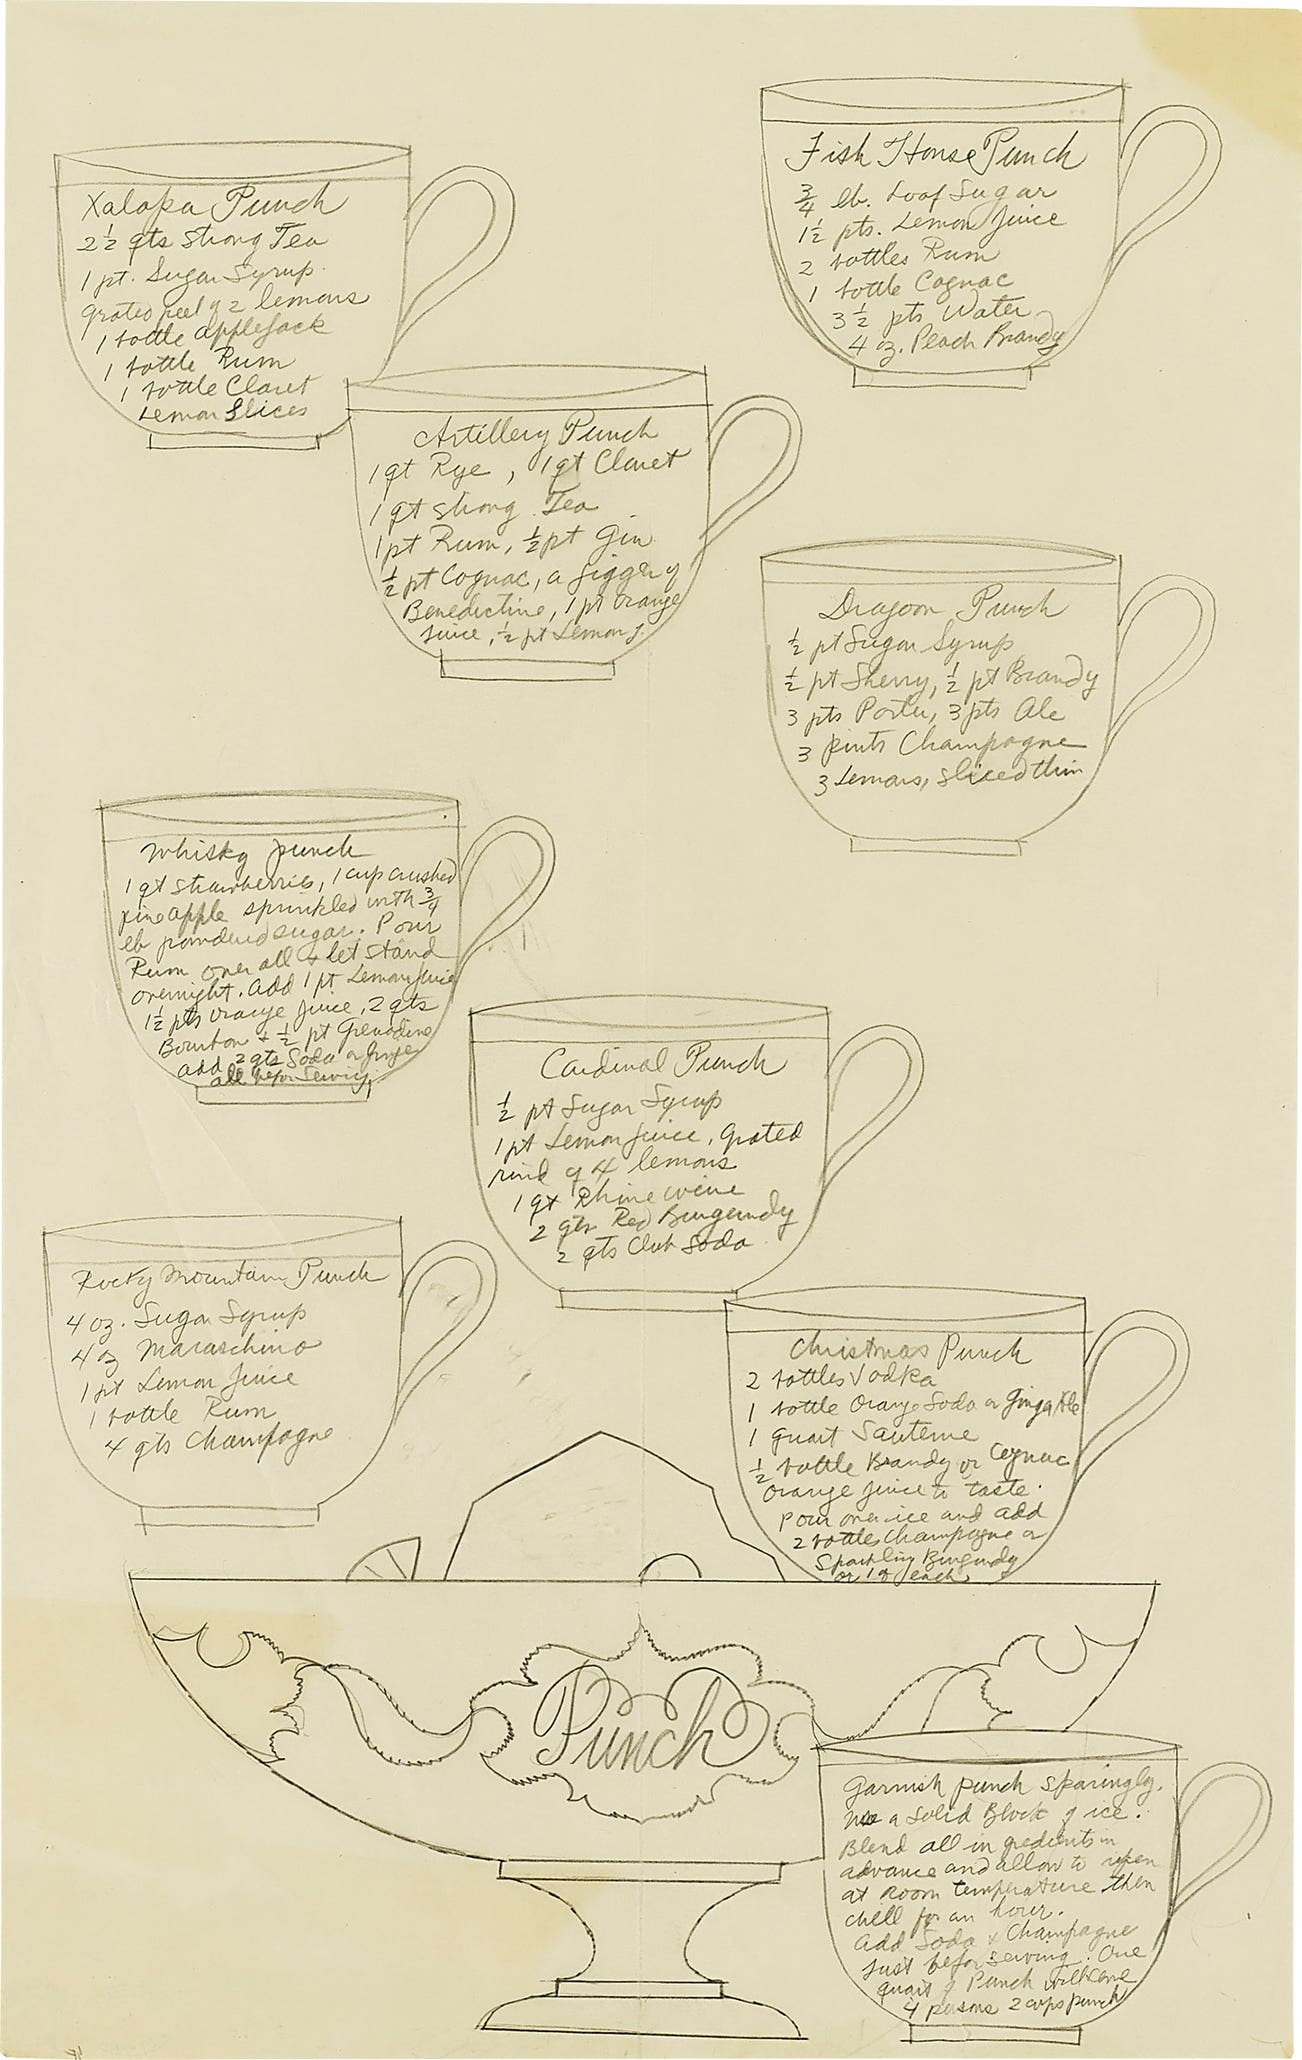 Xalapa Punch
2 1/2 qts Strong Tea
1 pt. Sugar Syrup.
grated peel of 2 lemons
1 bottle applejack
1 bottle Rum
1 bottle Claret
Lemon Slices
Fish House Punch
3/4 lb. Loaf Sugar
1 1/2 pts. Lemon Juice
2 bottles Rum
1 bottle Cognac
3 1/2 pts Water
4 oz. Peach Brandy
Artillery Punch
1 qt Rye, 1 qt Claret
1 qt strong Tea
1 pt Rum, 1/2 pt Gin
1/2 pt Cognac, a jigger of
Benedictine, 1 pt orange
juice, 1/2 pt Lemon J.
Dragoon Punch
1/2 pt Sugar Syrup
1/2 pt Sherry, 1/2 pt Brandy
3 pts Porter, 3 pts Ale
3 pints Champagne
3 Lemons, sliced thin
Whisky punch
1 qt strawberries, 1 cup crushed
pineapple sprinkled with 3/4
lb powdered sugar. Pour
Rum over all + let stand
overnight. Add 1 pt Lemon Juice
1 1/2 pts orange juice, 2 qts
Bourbon + 1/2 pt Grenadine
add 2 qts Soda or ginger
ale before Serving.
Cardinal Punch
1/2 pt Sugar Syrup
1 pt Lemon Juice, grated
rind of 4 lemons
1 qt Rhine wine
2 qts Red Burgundy
2 qts Club Soda
Rocky Mountain Punch
4 oz. Sugar Syrup
4 oz Maraschino
1 pt Lemon Juice
1 bottle Rum
4 qts Champagne
Christmas Punch
2 bottles Vodka
1 bottle Orange Soda or Ginger Ale
1 quart Sauterne
1/2 bottle Brandy or Cognac
orange juice to taste.
pour over ice and add
2 bottles Champagne or
Sparkling Burgundy
or 1 of each
Punch
Garnish punch sparingly.
Use a Solid Block of ice.
Blend all ingredients in
advance and allow to ripen
at room temperature then
chill for an hour.
Add Soda & Champagne
just before serving. One
quart of Punch will serve
4 persons 2 cups punch